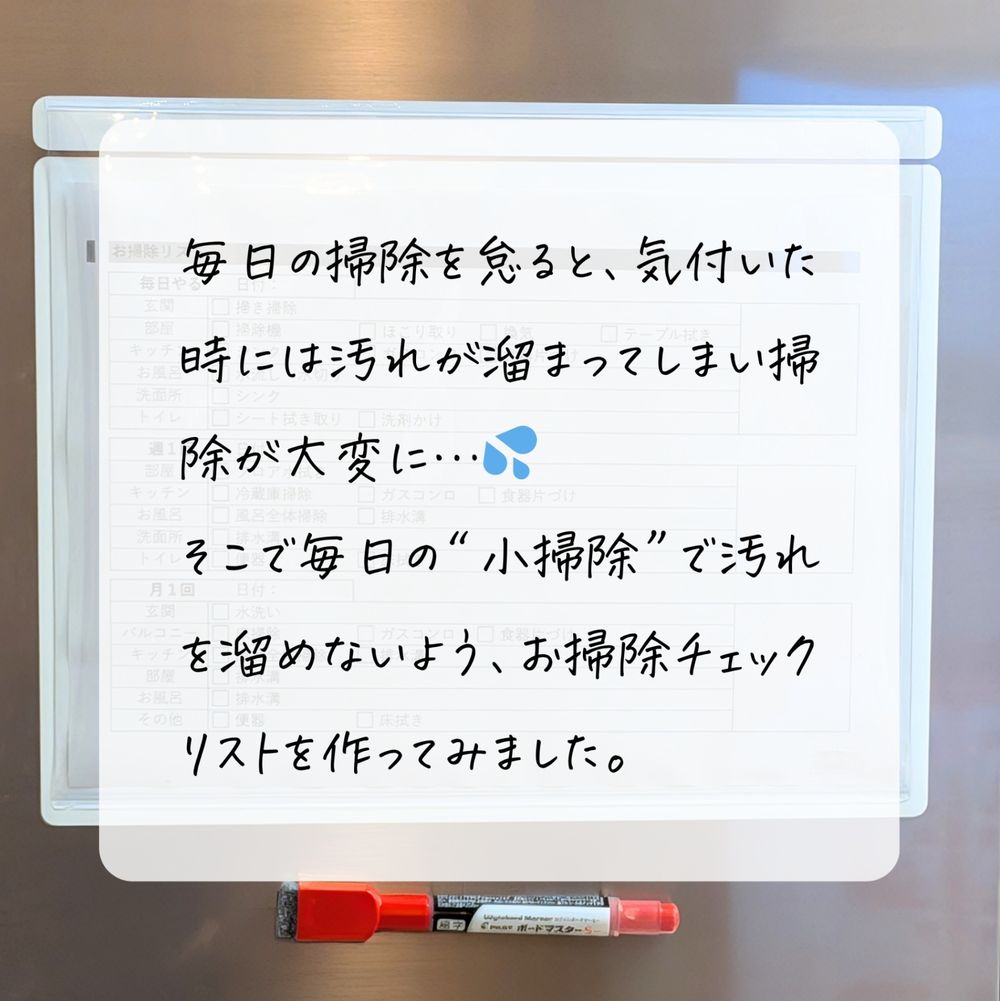 毎日の掃除を怠ると、気付いた
時には汚れが溜まってしまい掃
除が大変に…💦
そこで毎日の“小掃除”で汚れ
を溜めないよう、お掃除チェック
リストを作ってみました。
お掃除リス
毎日やる 日付：
玄関 掃き掃除
部屋 掃除機 ほこり取り 換気 テーブル拭き
キッチ
お風呂
洗面所 シンク
トイレ シート拭き取り 洗剤かけ
週1
部屋
キッチン 冷蔵庫掃除 ガスコンロ 食器片づけ
お風呂 風呂全体掃除 排水溝
洗面所 排水溝
トイレ 便器
月1回 日付：
玄関 水洗い
バルコニー ガスコンロ 食器片づけ
キッチ
部屋 排水溝
お風呂 排水溝
その他 便器 床拭き
Whiteboard Marker
細字 PILOT ボードマスターS